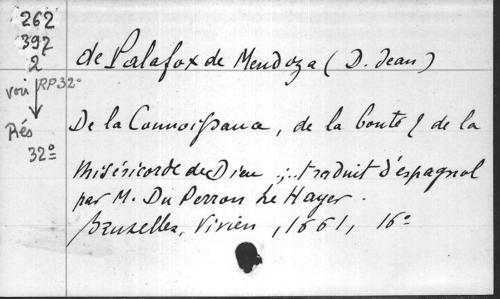 262
397
2
voir RP 32°
Rés
32°
de Palafox de Mendoza (D. Jean)
De la Connoissance, de la bonté & de la
Miséricorde de Dieu ;.. traduit d'espagnol
par M. Du Perron Le Hayer.
Bruxelles, Vivien, 1661, 16°